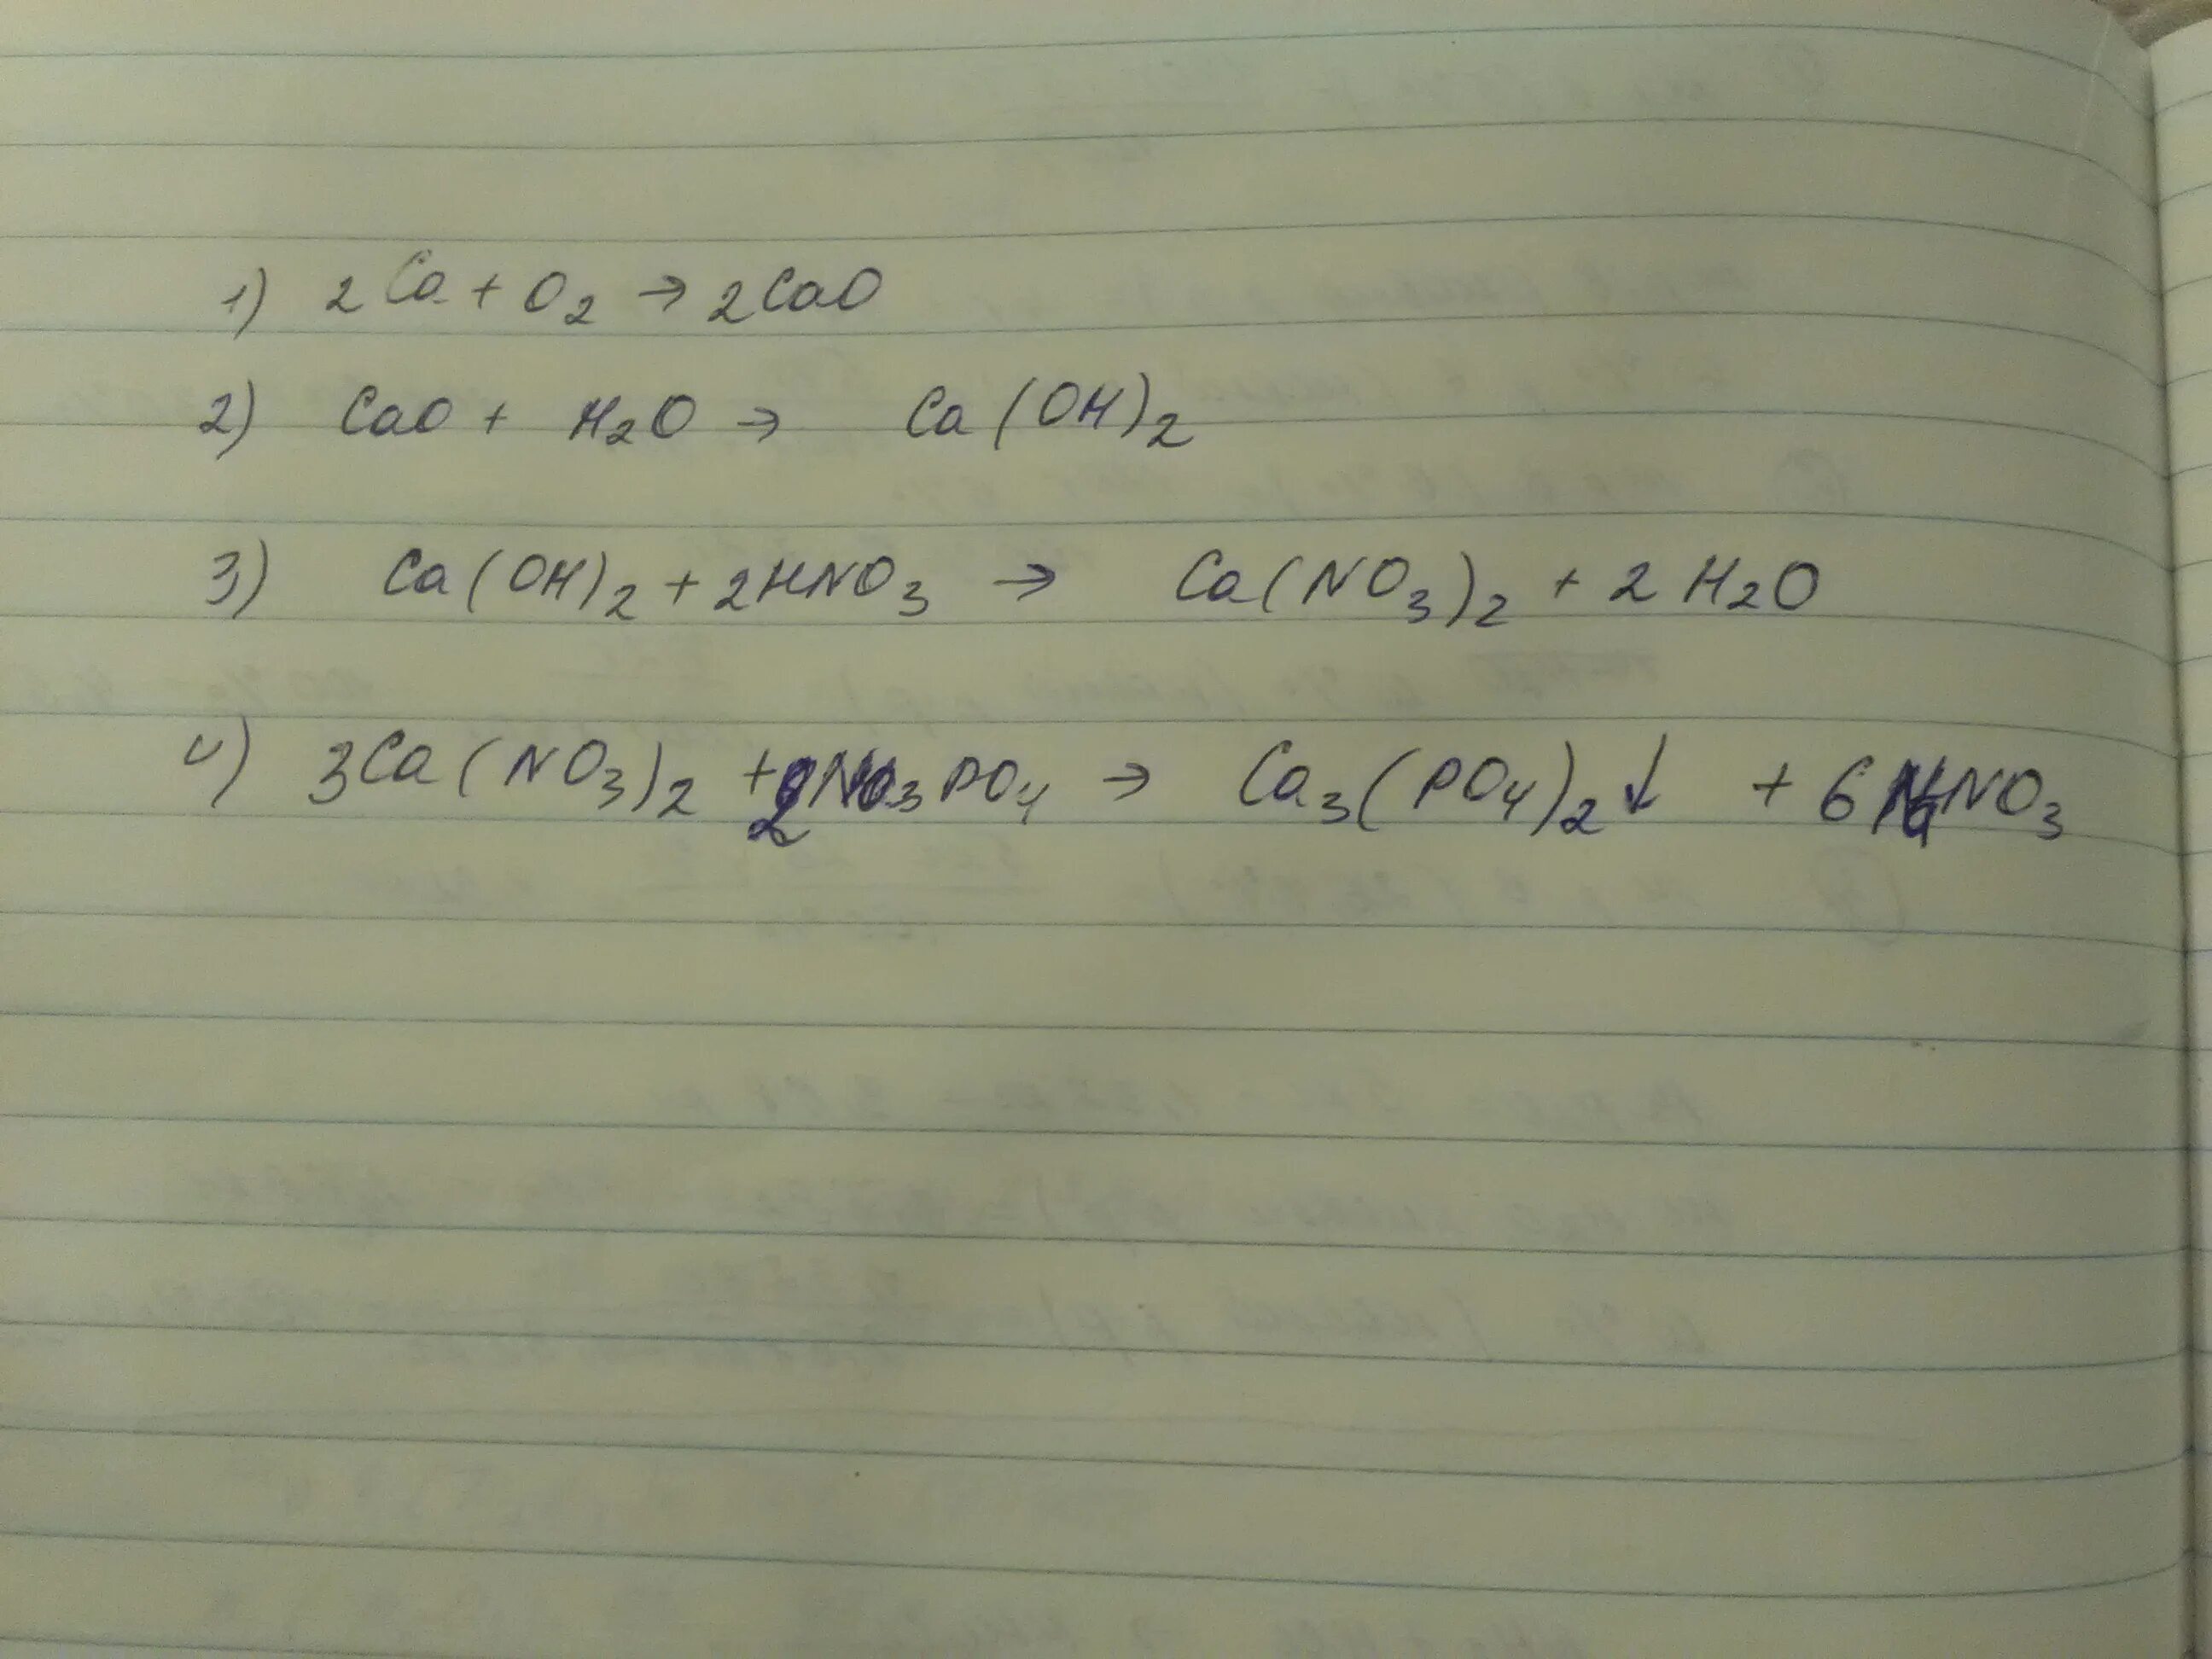 1) 2Ca + O₂ → 2CaO
2) CaO + H₂O → Ca(OH)₂
3) Ca(OH)₂ + 2HNO₃ → Ca(NO₃)₂ + 2H₂O
4) 3Ca(NO₃)₂ + 2Na₃PO₄ → Ca₃(PO₄)₂↓ + 6NaNO₃